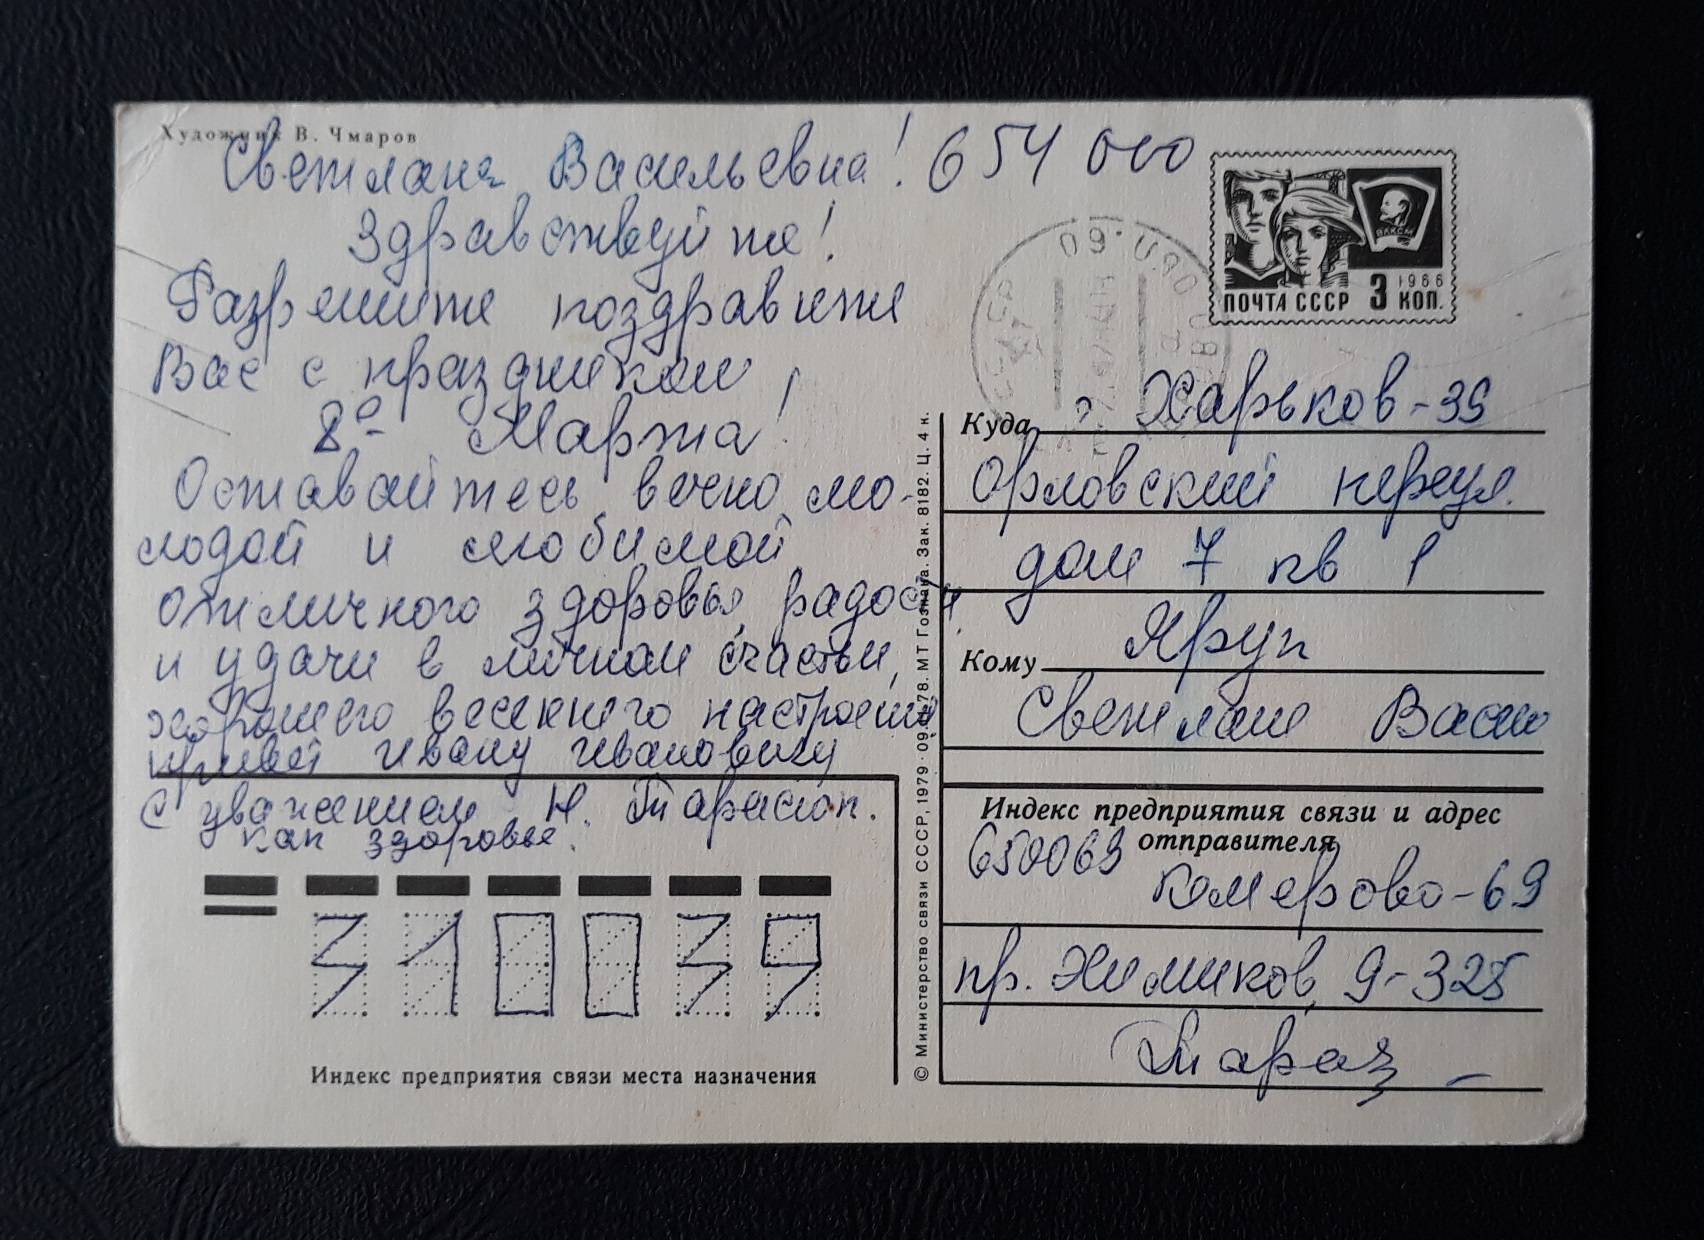 Художник В. Чмаров
Светлана Васильевна! 654 000
Здравствуйте!
Разрешите поздравити
Вас с праздником,
8е Марта!
Оставайтесь вечно мо-
лодой и любимой
отличного здоровья, радости
и удачи в личном счастьи,
хорошего весеннего настроения
привет Ивану Ивановичу
С уважением Н. Тарасюк.
как здоровье.
310039
Индекс предприятия связи места назначения
© Министерство связи СССР, 1979 · 09.01.78. МТ Гознака. Зак. 8182. Ц. 4 к.
ВЛКСМ
1966
ПОЧТА СССР 3 КОП.
Куда г Харьков-39
Орловский переул.
дом 7 кв 1
Кому Яруп
Светлане Васил
Индекс предприятия связи и адрес
отправителя
650069
Кемерово-69
пр. Химиков, 9-325
Тарас